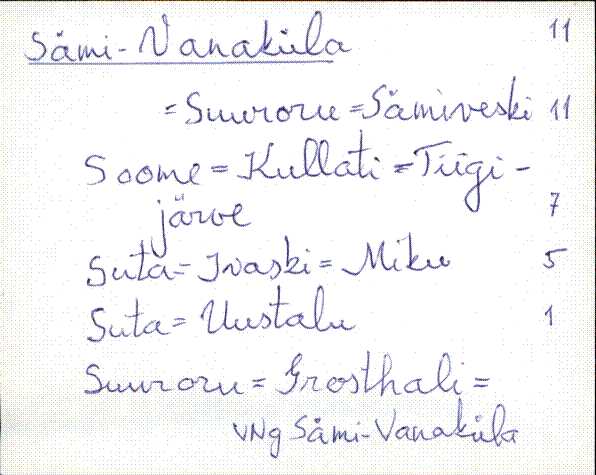 Sämi-Vanaküla 11
=Suuroru=Sämiveski 11
Soome=Kullati=Tiigi-
järve 7
Suta=Ivaski=Miku 5
Suta=Uustalu 1
Suuroru=Grosthali=
vNg Sämi-Vanaküla